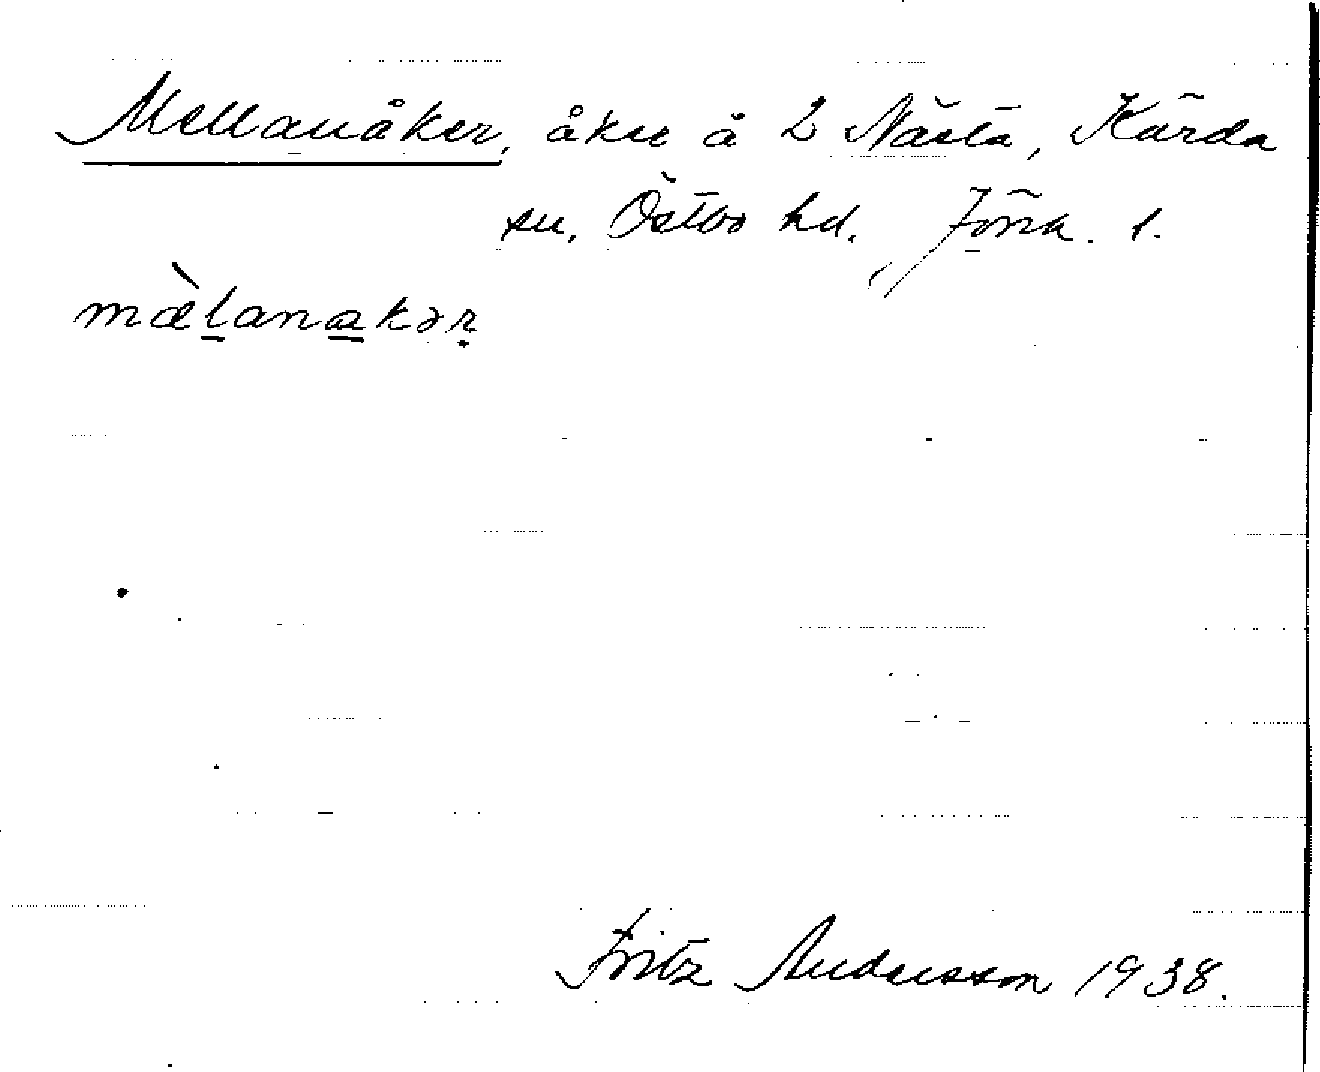 Mellanåker, åker å 2 Nästa, Kärda
sn. Östbo hd. Jönk. l.
mæ̀lanakər
Fritz Andersson 1938.